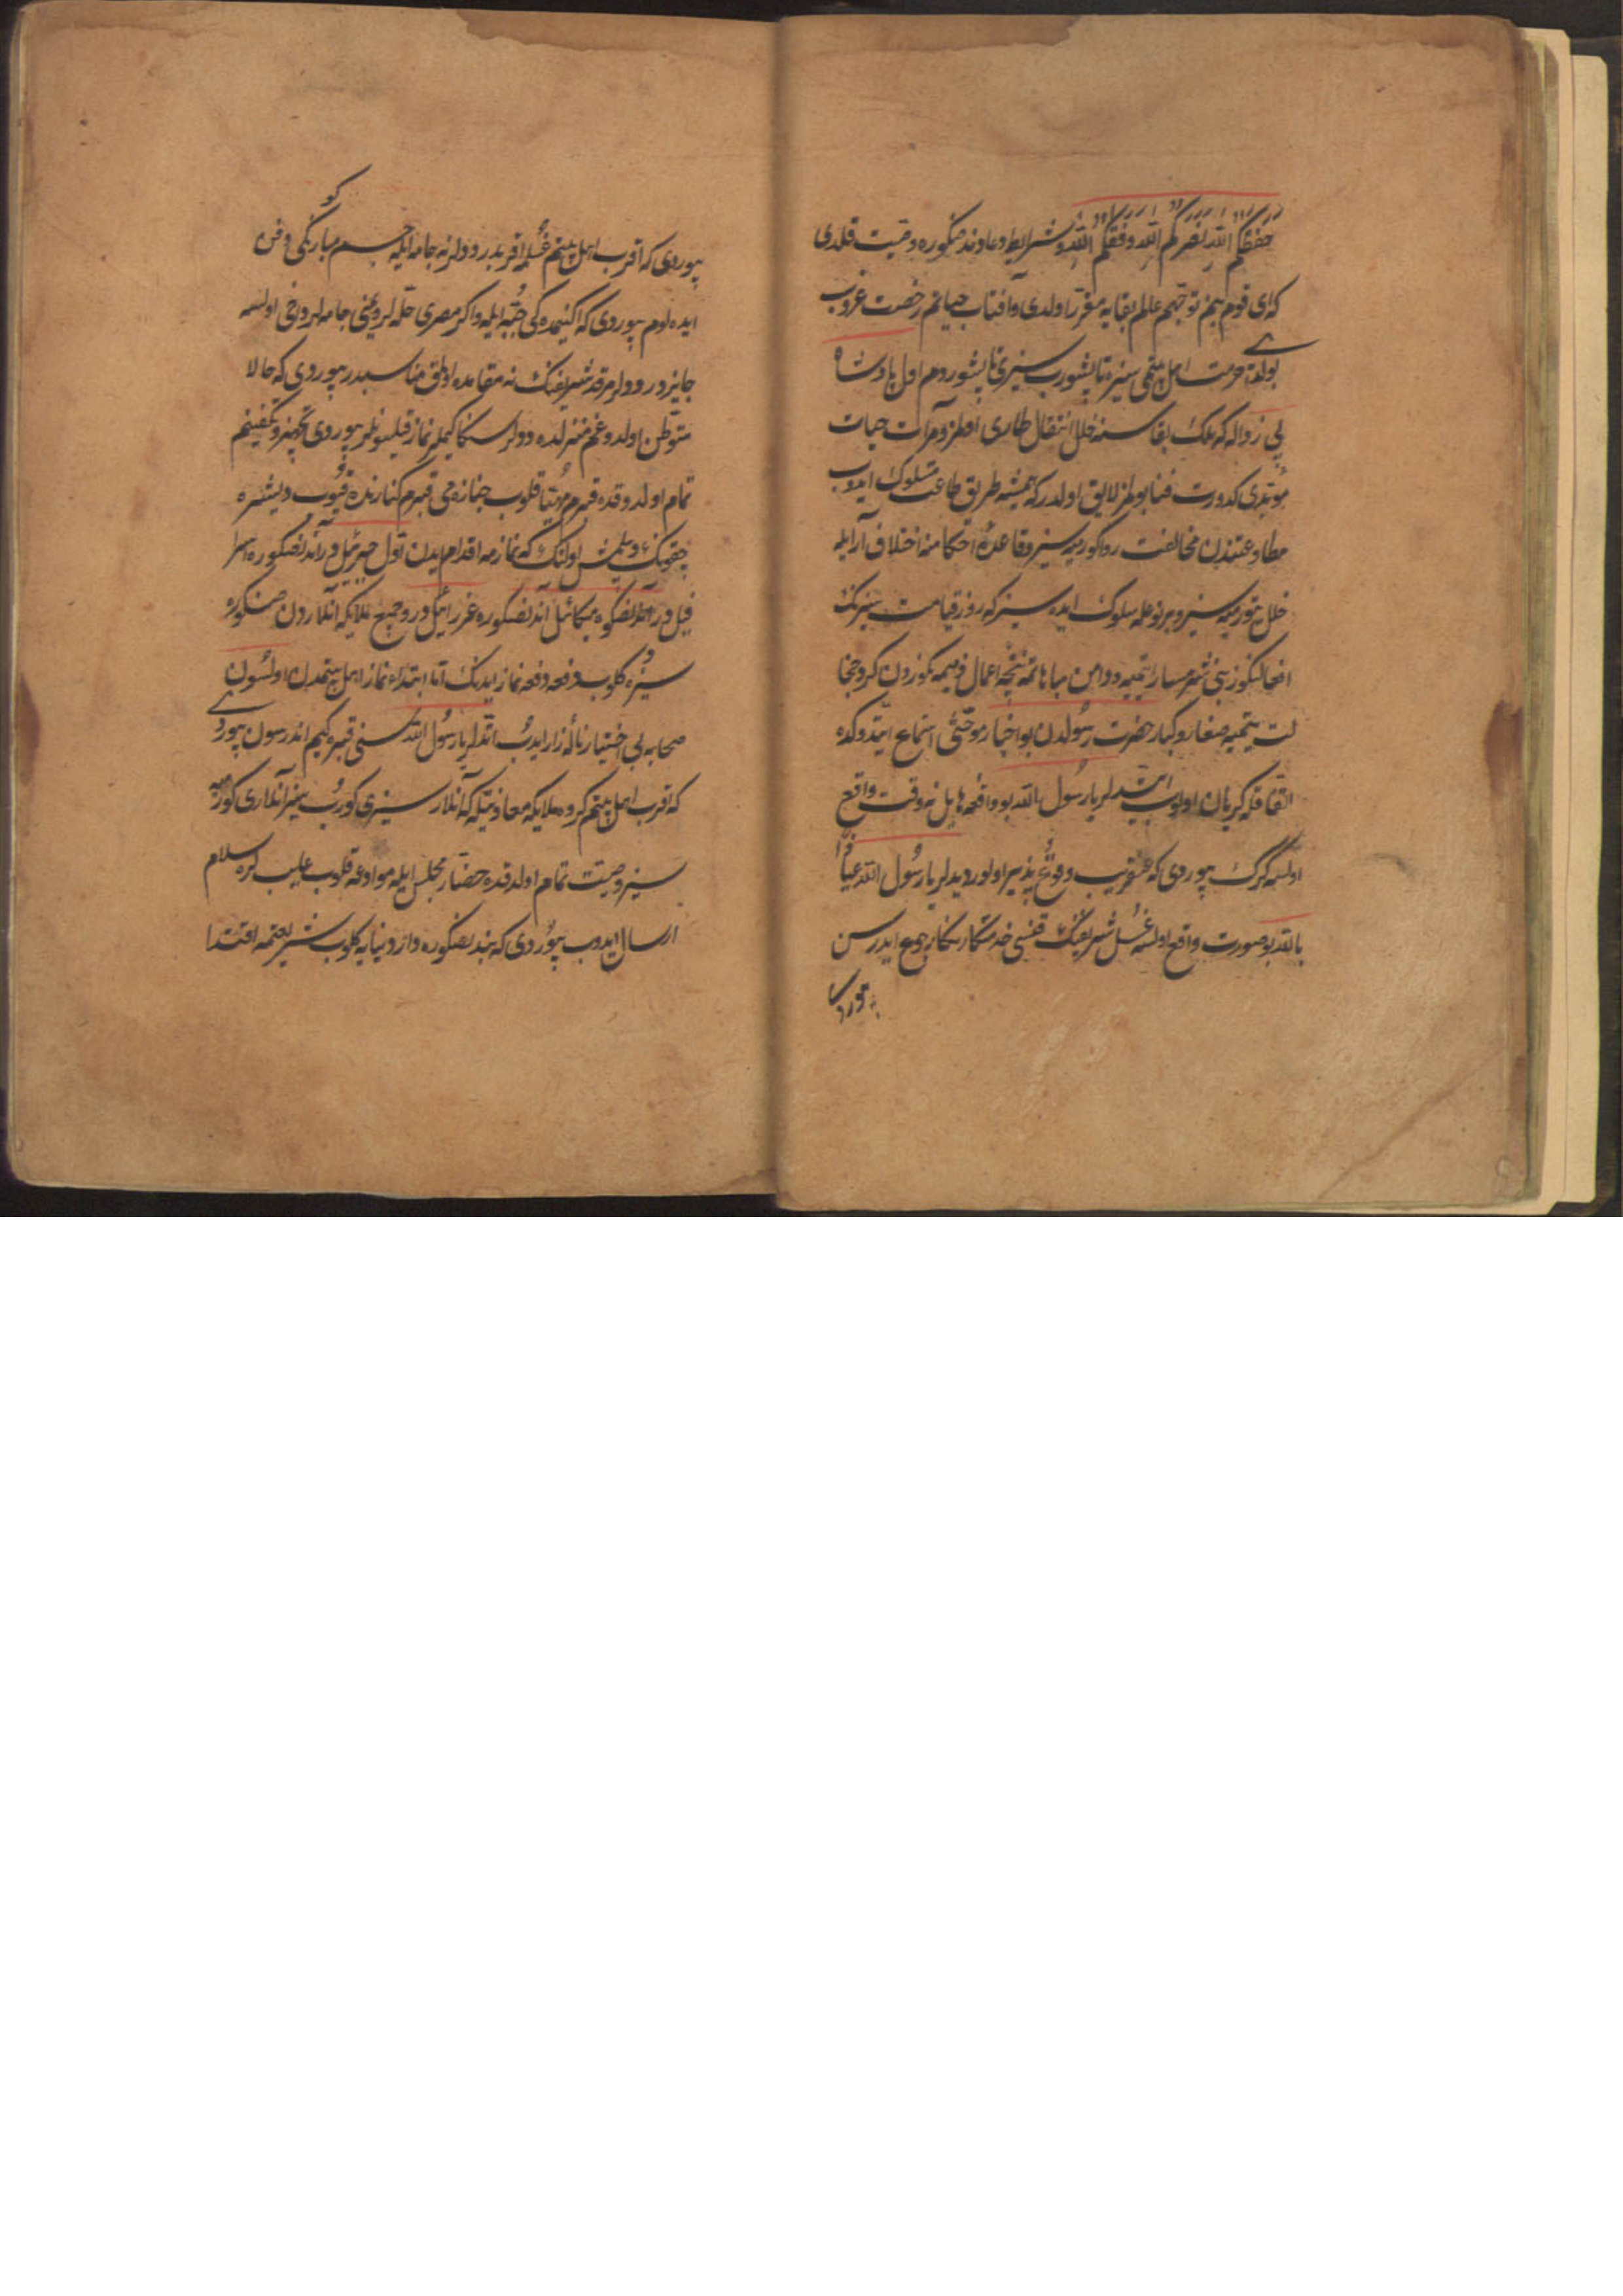 حفظكم الله نصركم الله وفقكم الله و شرایط دعاوند صنکوره وصیت قلدی
که ای قوم بنم توجهم عالم بقایه مقرر اولدی و آفتاب حیاتم رخصت غروب
بولدی حرمت اهل بیتمی سیزه تاپشورب سیزی تاپشوروم اول پادشاه
بی زواله که ملک بقاسنه خلل انتقال طاری اولمز و مرآت حیات
مؤبدی کدورت فنا بولمز لایق اولدر که همیشه طریق طاعت مسلوک ایدوب
مطاوعتندن مخالفت روا کورمیه سیز و قاعدهٔ احکامنه اختلاف آرایله
خلل یتورمیه سیز و بر نوعله سلوک ایده سیز که روز قیامت سیزنک
افعالنکوز بنی شرمسار ایتمیه و دامن مباهاتمه نتیجه اعمال ذمیمه نکوزدن کرد خجا
لت یتمیه صغار و کبار حضرت رسولدن بو اخبار موحشی استماع ایتدوکده
اتفاقله کریان اولوب ایتدیلر یا رسول الله بو واقعه هایل نه وقت واقع
اولسه کرک بیوردی که عنقریب وقوع پذیر اولور دیدیلر یا رسول الله عیاذا
بالله بو صورت واقع اولسه غسل شریفنک قنسی خدمتکارنکا رجوع ایدرسن
بیوردی
بیوردی که اقرب اهل بیتم غسله اقربدر دودیلر نه جامه ایله جسم مبارککی دفن
ایده لوم بیوردی که اکنیمده کی جبه ایله و اکر مصری حله لر و یمنی جامه لر داخی اولسه
جایزدر دودیلر مرقد شریفنک نه مقامده اولمق مناسبدر بیوردی که حالا
متوطن اولدوغم منزلده دودیلر سنکا کیملر نماز قلسونلر بیوردی تجهیز و تکفینم
تمام اولدوقده قبرم مهیا قلوب جنازه می قبرم کنارنده قویوب دیشره
چقونک و بلمش اولنک که نمازمه اقدام ایدن اول جبرئیل در آندنصکوره اسرا
فیل در آندنصکوره میکائیل آندنصکوره عزرائیل در و جمیع ملایکه آنلاردن صنکوره
سیز کلوب دفعه دفعه نماز ایدنک اما ابتداء نماز اهل بیتمدن اولسون
صحابه بی اختیار ناله زار ایدب ایتدیلر یا رسول الله سنی قبره کیم اندرسون بیوردی
که اقرب اهل بیتم کروه ملایکه معاونتیله که آنلار سیزی کورب سیز آنلاری کورمز
سیز وصیت تمام اولدقده حضار مجلس ایله موادعه قلوب غایب لره سلام
ارسال ایدوب بیوردی که بندنصنکوره دار دنیایه کلوب شریعتمه اقتدا